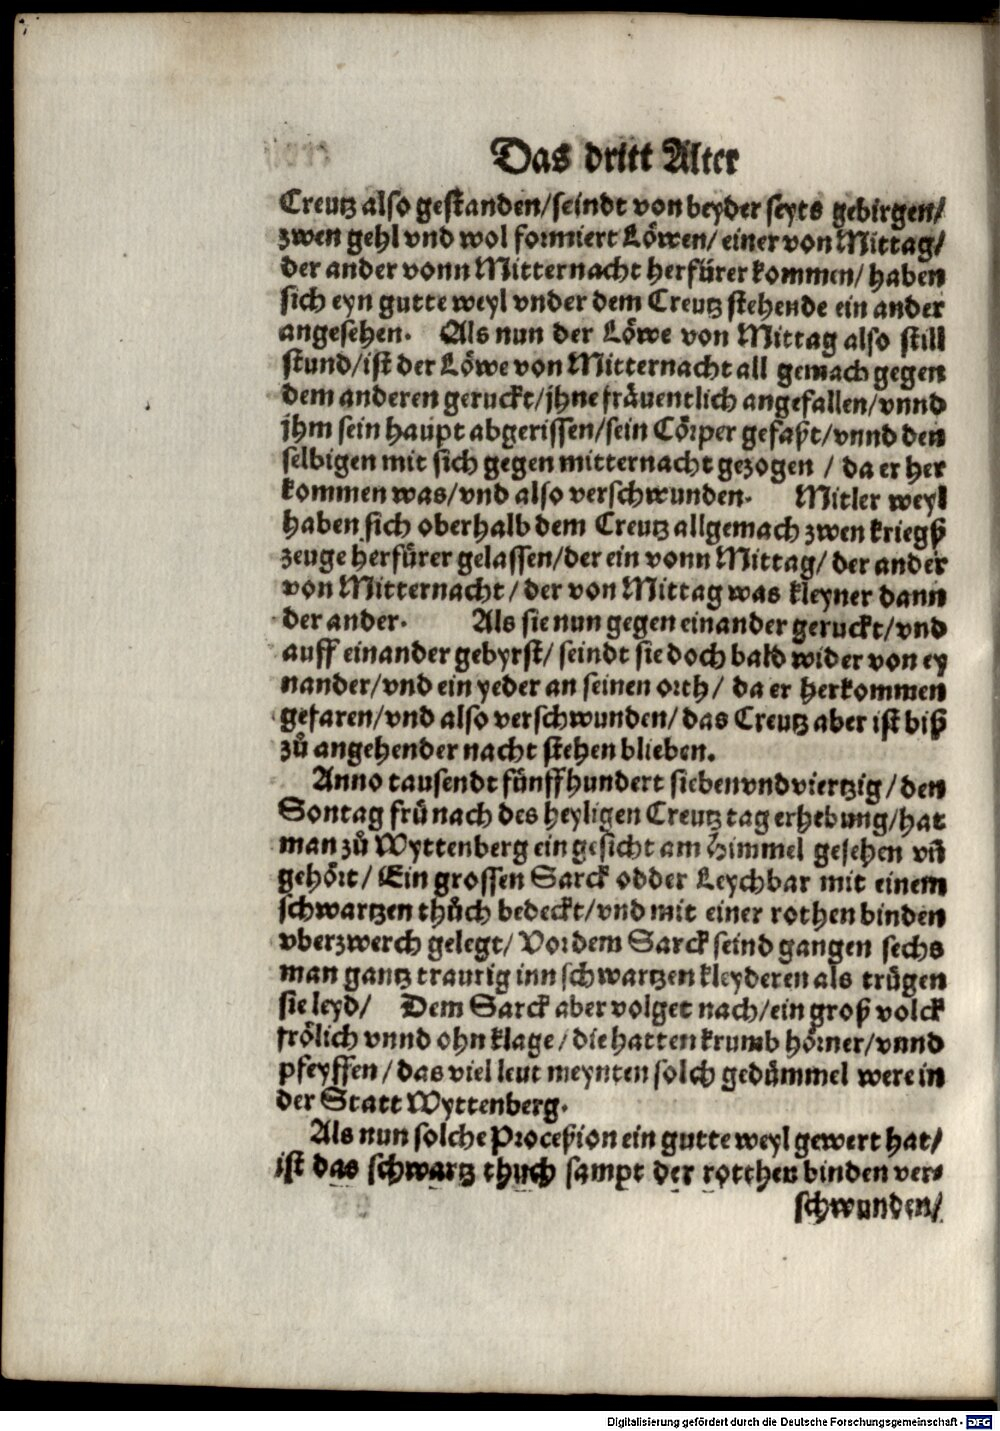 Das dritt Alter
Creutz also gestanden/seindt von beyder seyts gebirgen/
zwen gehl vnd wol formiert Löwen/ einer von Mittag/
der ander vonn Mitternacht herfürer kommen/ haben
sich eyn gutte weyl vnder dem Creutz stehende ein ander
angesehen. Als nun der Löwe von Mittag also still
stund/ist der Löwe von Mitternacht all gemach gegen
dem anderen geruckt/jhne fräuentlich angefallen/vnnd
jhm sein haupt abgerissen/sein Cörper gefaßt/vnnd den
selbigen mit sich gegen mitternacht gezogen / da er her
kommen was/vnd also verschwunden. Mitler weyl
haben sich oberhalb dem Creutz allgemach zwen kriegß
zeuge herfürer gelassen/der ein vonn Mittag/ der ander
von Mitternacht / der von Mittag was kleyner dann
der ander. Als sie nun gegen einander geruckt/vnd
auff einander gebyrst/ seindt sie doch bald wider von ey
nander/vnd ein yeder an seinen orth/ da er herkommen
gefaren/vnd also verschwunden/ das Creutz aber ist biß
zů angehender nacht stehen blieben.
Anno tausendt fünffhundert siebenvndviertzig / den
Sontag frü nach des heyligen Creutz tag erhebung/hat
man zů Wyttenberg ein gesicht am Himmel gesehen vñ
gehört/ Ein grossen Sarck odder Leychbar mit einem
schwartzen thůch bedeckt/vnd mit einer rothen binden
vberzwerch gelegt/ Vor dem Sarck seind gangen sechs
man gantz traurig inn schwartzen kleyderen als trügen
sie leyd/ Dem Sarck aber volget nach/ein groß volck
frölich vnnd ohn klage / die hatten krumb hörner/vnnd
pfeyffen / das viel leut meynten solch gedümmel were in
der Statt Wyttenberg.
Als nun solche Proceßion ein gutte weyl gewert hat/
ist das schwartz thuch sampt der rotthen binden ver⸗
schwunden/
Digitalisierung gefördert durch die Deutsche Forschungsgemeinschaft - DFG